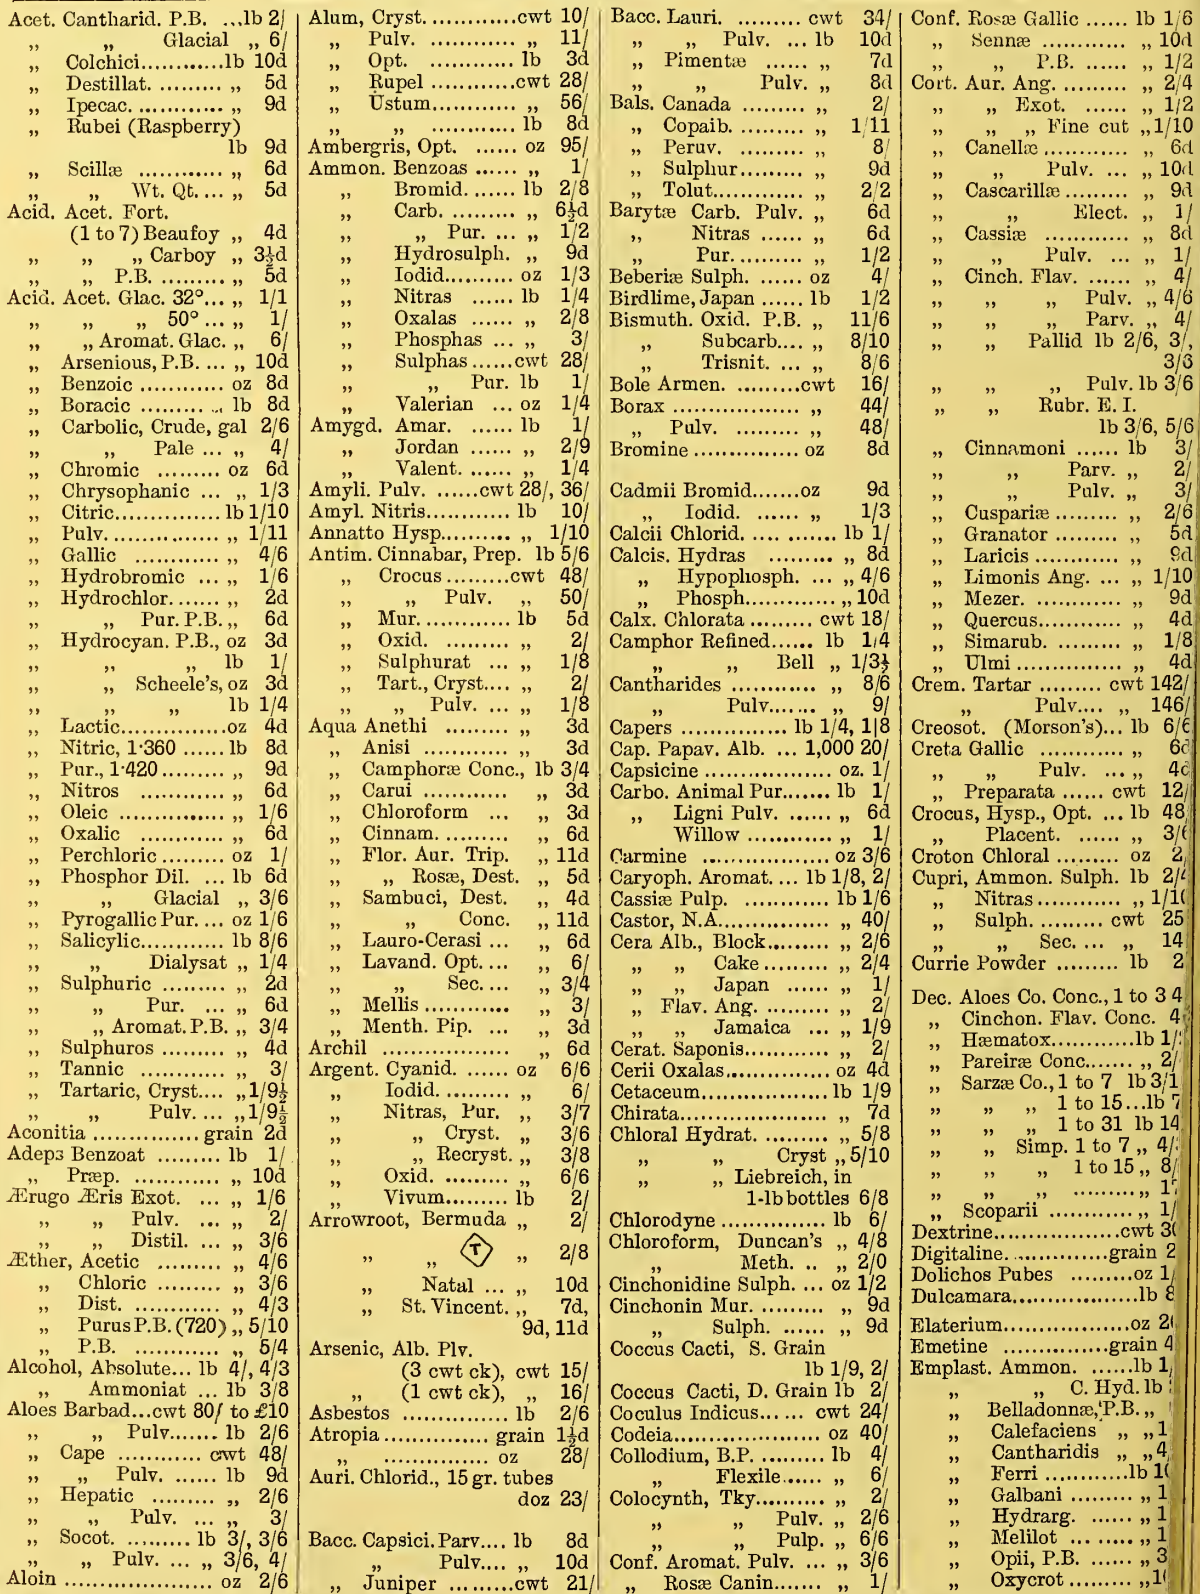 Acet. Cantharid. P.B. ...lb 2/
„ „ Glacial „ 6/
„ Colchici............lb 10d
„ Destillat. ........... „ 5d
„ Ipecac. ............. „ 9d
„ Rubei (Raspberry)
lb 9d
„ Scillæ ............ „ 6d
„ „ Wt. Qt. ... „ 5d
Acid. Acet. Fort.
(1 to 7) Beaufoy „ 4d
„ „ „ Carboy „ 3½d
„ „ P.B. ......... „ 5d
Acid. Acet. Glac. 32°... „ 1/1
„ „ „ 50° ... „ 1/
„ „ Aromat. Glac. „ 6/
„ Arsenious, P.B. ... „ 10d
„ Benzoic ............ oz 8d
„ Boracic ............ lb 8d
„ Carbolic, Crude, gal 2/6
„ „ Pale ... „ 4/
„ Chromic ......... oz 6d
„ Chrysophanic ... „ 1/3
„ Citric...............lb 1/10
„ Pulv. ............... „ 1/11
„ Gallic ............ „ 4/6
„ Hydrobromic ... „ 1/6
„ Hydrochlor. ...... „ 2d
„ „ Pur. P.B. „ 6d
„ Hydrocyan. P.B., oz 3d
„ „ „ lb 1/
„ „ Scheele's, oz 3d
„ „ „ lb 1/4
„ Lactic...............oz 4d
„ Nitric, 1·360 ...... lb 8d
„ Pur., 1·420......... „ 9d
„ Nitros ............ „ 6d
„ Oleic ............... „ 1/6
„ Oxalic ............ „ 6d
„ Perchloric ......... oz 1/
„ Phosphor Dil. ... lb 6d
„ „ Glacial „ 3/6
„ Pyrogallic Pur. ... oz 1/6
„ Salicylic............ lb 8/6
„ „ Dialysat „ 1/4
„ Sulphuric ......... „ 2d
„ „ Pur. „ 6d
„ „ Aromat. P.B. „ 3/4
„ Sulphuros ......... „ 4d
„ Tannic ............ „ 3/
„ Tartaric, Cryst.... „ 1/9½
„ „ Pulv. ... „ 1/9½
Aconitia ............... grain 2d
Adeps Benzoat ......... lb 1/
„ Præp. ............ „ 10d
Ærugo Æris Exot. ... „ 1/6
„ „ Pulv. ... „ 2/
„ „ Distil. ... „ 3/6
Æther, Acetic ......... „ 4/6
„ Chloric ......... „ 3/6
„ Dist. ............ „ 4/3
„ Purus P.B. (720) „ 5/10
„ P.B. ............ „ 5/4
Alcohol, Absolute... lb 4/, 4/3
„ Ammoniat ... lb 3/8
Aloes Barbad...cwt 80/ to £10
„ „ Pulv....... lb 2/6
„ Cape ......... cwt 48/
„ „ Pulv. ...... lb 9d
„ Hepatic ......... „ 2/6
„ „ Pulv. ... „ 3/
„ Socot. ...... lb 3/, 3/6
„ „ Pulv. ... „ 3/6, 4/
Aloin ..................... oz 2/6
Alum, Cryst. ............cwt 10/
„ Pulv. ............ „ 11/
„ Opt. ............ lb 3d
„ Rupel ............cwt 28/
„ Ustum............ „ 56/
„ „ ............ lb 8d
Ambergris, Opt. ...... oz 95/
Ammon. Benzoas ...... „ 1/
„ Bromid. ...... lb 2/8
„ Carb. ......... „ 6½d
„ „ Pur. ... „ 1/2
„ Hydrosulph. „ 9d
„ Iodid.......... oz 1/3
„ Nitras ...... lb 1/4
„ Oxalas ...... „ 2/8
„ Phosphas ... „ 3/
„ Sulphas......cwt 28/
„ „ Pur. lb 1/
„ Valerian ... oz 1/4
Amygd. Amar. ...... lb 1/
„ Jordan ...... „ 2/9
„ Valent. ...... „ 1/4
Amyli. Pulv. ......cwt 28/, 36/
Amyl. Nitris............ lb 10/
Annatto Hysp.......... „ 1/10
Antim. Cinnabar, Prep. lb 5/6
„ Crocus .........cwt 48/
„ „ Pulv. „ 50/
„ Mur. ............ lb 5d
„ Oxid. ............ „ 2/
„ Sulphurat ... „ 1/8
„ Tart., Cryst.... „ 2/
„ „ Pulv. ... „ 1/8
Aqua Anethi ............ „ 3d
„ Anisi ............ „ 3d
„ Camphoræ Conc., lb 3/4
„ Carui ............ „ 3d
„ Chloroform ... „ 3d
„ Cinnam. ......... „ 6d
„ Flor. Aur. Trip. „ 11d
„ „ Rosæ, Dest. „ 5d
„ Sambuci, Dest. „ 4d
„ „ Conc. „ 11d
„ Lauro-Cerasi ... „ 6d
„ Lavand. Opt. ... „ 6/
„ „ Sec. ... „ 3/4
„ Mellis ............ „ 3/
„ Menth. Pip. ... „ 3d
Archil .................. „ 6d
Argent. Cyanid. ...... oz 6/6
„ Iodid. ......... „ 6/
„ Nitras, Pur. „ 3/7
„ „ Cryst. „ 3/6
„ „ Recryst. „ 3/8
„ Oxid. ......... „ 6/6
„ Vivum......... lb 2/
Arrowroot, Bermuda „ 2/
„ „ T „ 2/8
„ Natal ... „ 10d
„ St. Vincent. „ 7d,
9d, 11d
Arsenic, Alb. Plv.
(3 cwt ck), cwt 15/
„ (1 cwt ck), „ 16/
Asbestos ............... lb 2/6
Atropia ............... grain 1½d
„ ............... oz 28/
Auri. Chlorid., 15 gr. tubes
doz 23/
Bacc. Capsici. Parv.... lb 8d
„ „ Pulv.... „ 10d
„ Juniper .........cwt 21/
Bacc. Lauri. ...... cwt 34/
„ „ Pulv. ... lb 10d
„ Pimentæ ...... „ 7d
„ „ Pulv. „ 8d
Bals. Canada ......... „ 2/
„ Copaib. ......... „ 1/11
„ Peruv. ......... „ 8/
„ Sulphur......... „ 9d
„ Tolut............ „ 2/2
Barytæ Carb. Pulv. „ 6d
„ Nitras ...... „ 6d
„ Pur. ......... „ 1/2
Beberiæ Sulph. ...... oz 4/
Birdlime, Japan ...... lb 1/2
Bismuth. Oxid. P.B. „ 11/6
„ Subcarb.... „ 8/10
„ Trisnit. ... „ 8/6
Bole Armen. .........cwt 16/
Borax .................. „ 44/
„ Pulv. ............ „ 48/
Bromine ............... oz 8d
Cadmii Bromid.......oz 9d
„ Iodid. ...... „ 1/3
Calcii Chlorid. ... ......... lb 1/
Calcis. Hydras ......... „ 8d
„ Hypophosph. ... „ 4/6
„ Phosph............ „ 10d
Calx. Chlorata ......... cwt 18/
Camphor Refined...... lb 1/4
„ „ Bell „ 1/3½
Cantharides ............ „ 8/6
„ Pulv....... „ 9/
Capers ............... lb 1/4, 1|8
Cap. Papav. Alb. ... 1,000 20/
Capsicine .................. oz. 1/
Carbo. Animal Pur....... lb 1/
„ Ligni Pulv. ...... „ 6d
Willow ............ „ 1/
Carmine .................. oz 3/6
Caryoph. Aromat. ... lb 1/8, 2/
Cassiæ Pulp. ............ lb 1/6
Castor, N.A............... „ 40/
Cera Alb., Block......... „ 2/6
„ „ Cake ......... „ 2/4
„ „ Japan ...... „ 1/
„ Flav. Ang. ......... „ 2/
„ „ Jamaica ... „ 1/9
Cerat. Saponis............ „ 2/
Cerii Oxalas............... oz 4d
Cetaceum.................. lb 1/9
Chirata..................... „ 7d
Chloral Hydrat. ......... „ 5/8
„ „ Cryst „ 5/10
„ „ Liebreich, in
1-lb bottles 6/8
Chlorodyne ............... lb 6/
Chloroform, Duncan's „ 4/8
„ Meth. .. „ 2/0
Cinchonidine Sulph. ... oz 1/2
Cinchonin Mur. ......... „ 9d
„ Sulph. ...... „ 9d
Coccus Cacti, S. Grain
lb 1/9, 2/
Coccus Cacti, D. Grain lb 2/
Coculus Indicus...... cwt 24/
Codeia..................... oz 40/
Collodium, B.P. ......... lb 4/
„ Flexile...... „ 6/
Colocynth, Tky.......... „ 2/
„ „ Pulv. „ 2/6
„ „ Pulp. „ 6/6
Conf. Aromat. Pulv. ... „ 3/6
„ Rosæ Canin...... „ 1/
Conf. Rosæ Gallic ...... lb 1/6
„ Sennæ ............ „ 10d
„ „ P.B. ...... „ 1/2
Cort. Aur. Ang. ......... „ 2/4
„ „ Exot. ...... „ 1/2
„ „ „ Fine cut „ 1/10
„ Canellæ ............ „ 6d
„ „ Pulv. ... „ 10d
„ Cascarillæ ......... „ 9d
„ „ Elect. „ 1/
„ Cassiæ ............ „ 8d
„ „ Pulv. ... „ 1/
„ Cinch. Flav. ...... „ 4/
„ „ „ Pulv. „ 4/6
„ „ „ Parv. „ 4/
„ „ Pallid lb 2/6, 3/,
3/6
„ „ „ Pulv. lb 3/6
„ „ Rubr. E. I.
lb 3/6, 5/6
„ Cinnamoni ...... lb 3/
„ „ Parv. „ 2/
„ „ Pulv. „ 3/
„ Cuspariæ ......... „ 2/6
„ Granator ......... „ 5d
„ Laricis ............ „ 9d
„ Limonis Ang. ... „ 1/10
„ Mezer. ............ „ 9d
„ Quercus............ „ 4d
„ Simarub. ......... „ 1/8
„ Ulmi ............... „ 4d
Crem. Tartar ......... cwt 142/
„ Pulv.... „ 146/
Creosot. (Morson's)... lb 6/6
Creta Gallic ............ „ 6d
„ „ Pulv. ... „ 4d
„ Preparata ...... cwt 12/
Crocus, Hysp., Opt. ... lb 48
„ Placent. ...... „ 3/6
Croton Chloral ......... oz 2
Cupri, Ammon. Sulph. lb 2/4
„ Nitras ............ „ 1/10
„ Sulph. ......... cwt 25
„ „ Sec. ... „ 14
Currie Powder ......... lb 2
Dec. Aloes Co. Conc., 1 to 3 4
„ Cinchon. Flav. Conc. 4
„ Hæmatox.........lb 1/
„ Pareiræ Conc...... „ 2/
„ Sarzæ Co., 1 to 7 lb 3/1
„ „ „ 1 to 15...lb 7
„ „ „ 1 to 31 lb 14
„ „ Simp. 1 to 7 „ 4/
„ „ „ 1 to 15 „ 8/
„ „ „ ......... „ 1
„ Scoparii ............ „ 1/
Dextrine..................cwt 3
Digitaline...............grain 2
Dolichos Pubes .........oz 1
Dulcamara..................lb 8
Elaterium..................oz 2
Emetine ...............grain 4
Emplast. Ammon. ......lb 1
„ „ C. Hyd. lb
„ Belladonnæ, P.B. „
„ Calefaciens „ „ 1
„ Cantharidis „ „ 4
„ Ferri ............lb 1
„ Galbani ......... „ 1
„ Hydrarg. ...... „ 1
„ Melilot ......... „ 1
„ Opii, P.B. ...... „ 3
„ Oxycrot ......... „ 1